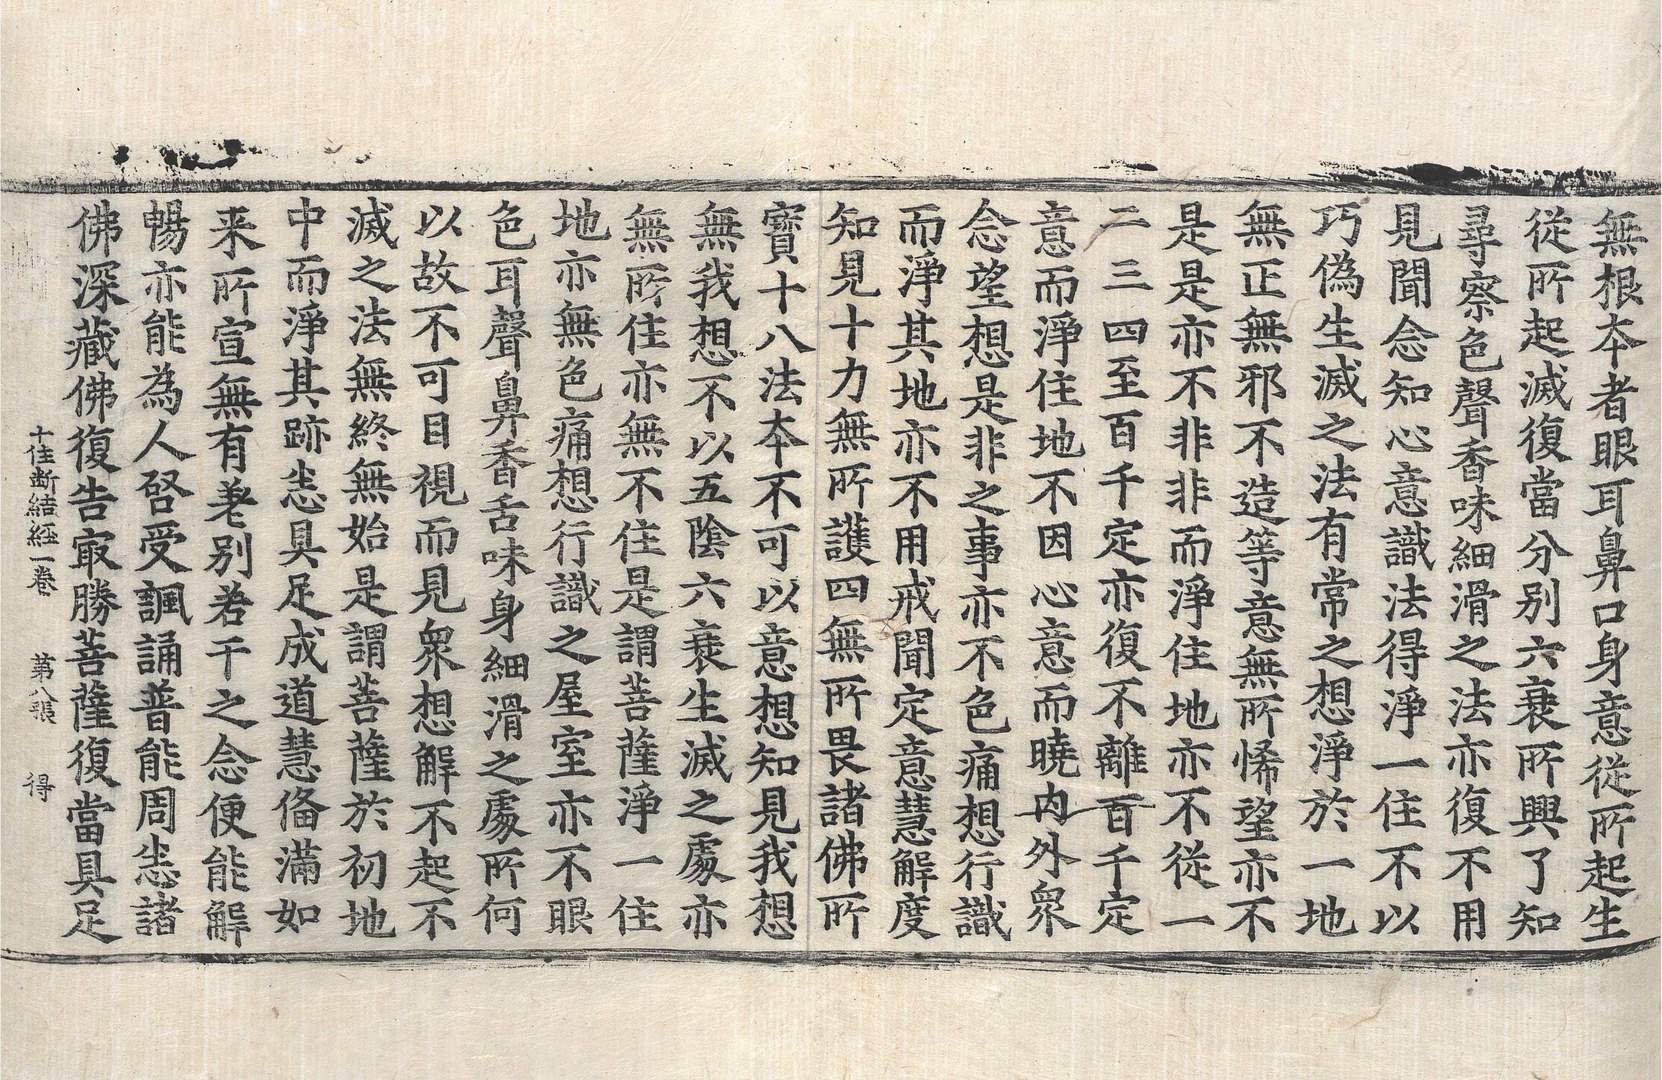 無根本者眼耳鼻口身意從所起生
從所起滅復當分別六衰所興了知
尋察色聲香味細滑之法亦復不用
見聞念知心意識法得淨一住不以
巧偽生滅之法有常之想淨於一地
無正無邪不造等意無所悕望亦不
是是亦不非非而淨住地亦不從一
二三四至百千定亦復不離百千定
意而淨住地不因心意而曉内外眾
念望想是非之事亦不色痛想行識
而淨其地亦不用戒聞定意慧解度
知見十力無所護四無所畏諸佛所
寶十八法本不可以意想知見我想
無我想不以五陰六衰生滅之處亦
無所住亦無不住是謂菩薩淨一住
地亦無色痛想行識之屋室亦不眼
色耳聲鼻香舌味身細滑之處所何
以故不可目視而見眾想解不起不
滅之法無終無始是謂菩薩於初地
中而淨其跡悉具足成道慧俻滿如
来所宣無有差別若干之念便能解
暢亦能為人啓受諷誦普能周悉諸
佛深藏佛復告最勝菩薩復當具足
十住断結經一卷 第八張 得